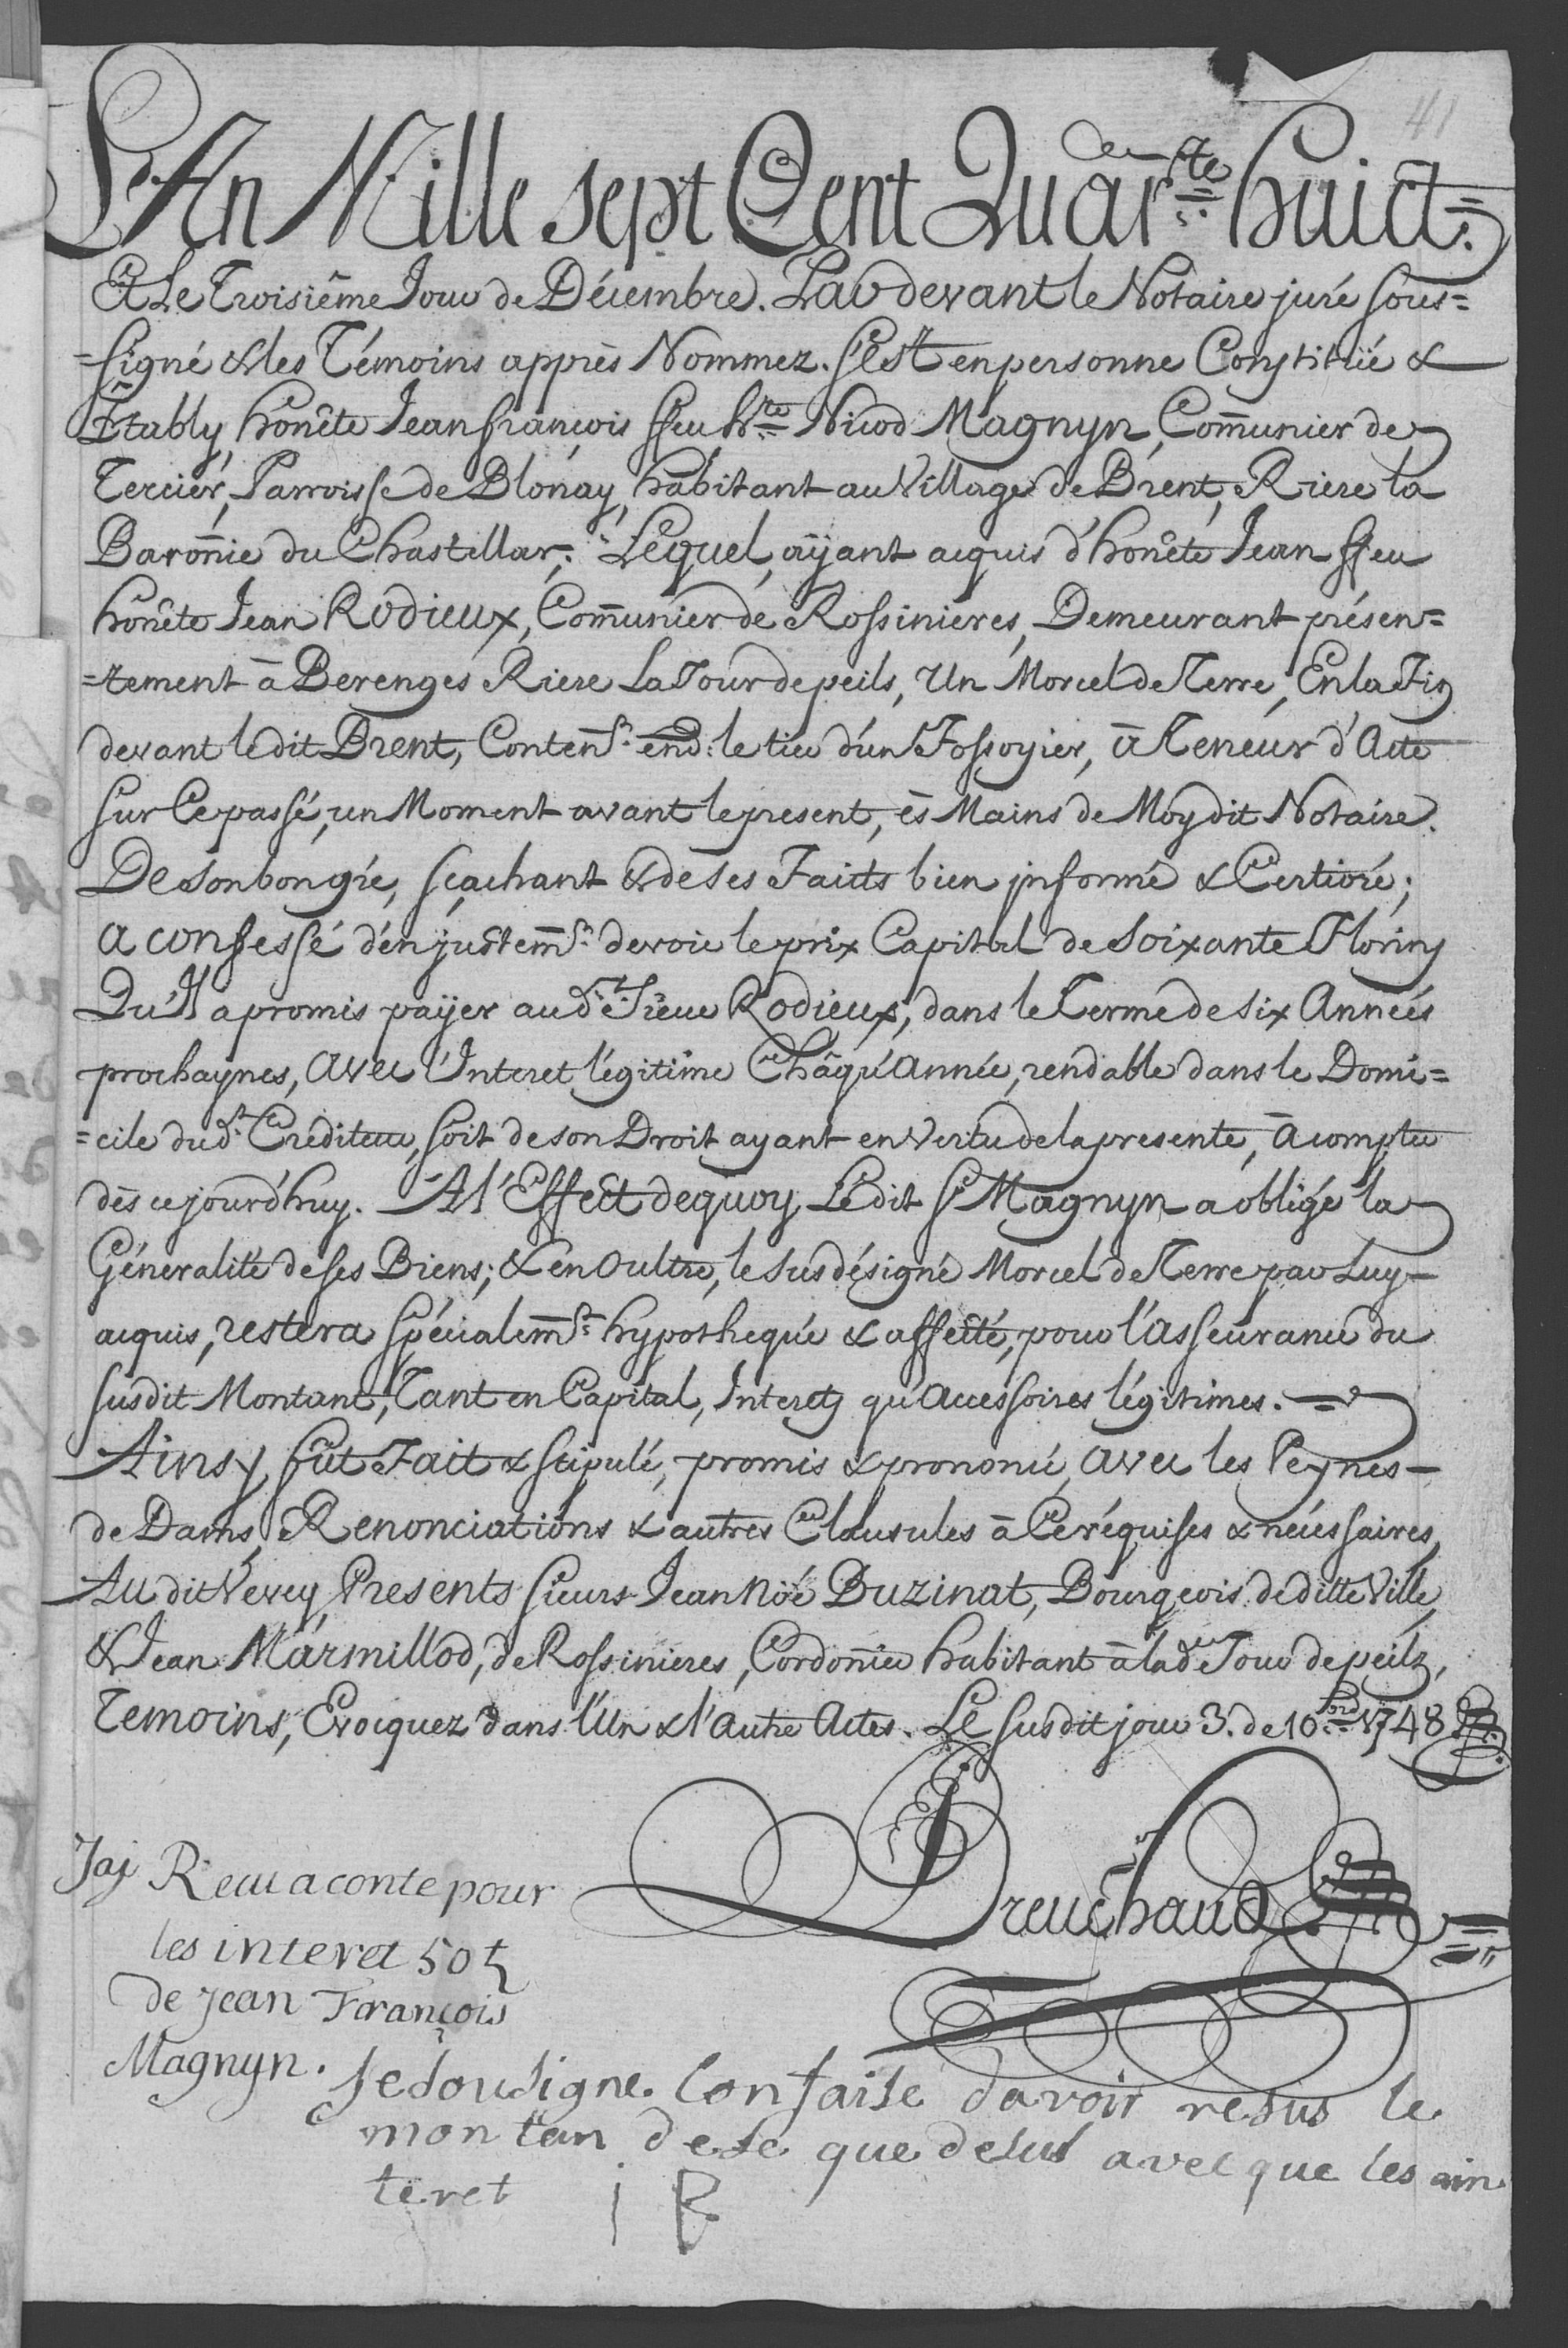 41
L'An Mille sept Cent Quar.te huict.
Et Le Troisiême Jour de Décembre. Par devant le Notaire juré sous=
=signé & les Témoins apprès Nommez. s'est en personne Constitüé &
Êtably, honête Jean françois ffeu h.te Nicod Magnyn, Com̃unier de
Tercier, Parroisse de Blonay, habitant au Village de Brent, Riere la
Baroñie du Chastillar; Lequel, aÿant acquis d'honête Jean ffeu
honête Jean Rodieux, Com̃unier de Rossinieres, Demeurant présen=
=tement à Berenges Riere La Tour de peils, Un Morcel de Terre, En la Fin
devant le dit Brent, Conten.t end: le tier d'un Fossoyier, à Teneur d'Acte
sur Ce passé, un Moment avant le present, ès Mains de Moy dit Notaire.
De son bon gré, sçachant & de ses Faicts bien jnformé & Certioré;
a confessé d'en justem̃.t devoir le prix Capital de Soixante Florins
Qu'Jl a promis paÿer aud.t Sieur Rodieux, dans le Terme de six Années
prochaynes, avec l'Interet légitime Châqu'Année, rendable dans le Domi=
=cile dud.t Créditeur, soit de son Droit ayant en vertu de la presente, à compter
dès ce jourd'huy. A l'Effect de quoy Ledit S.r Magnyn a obligé la
Généralité de ses Biens; & en Oultre, le susdésigné Morcel de Terre par Luy
acquis, restera spécialem̃.t hypothequé & affecté, pour l'asseurance du
susdit Montant, Tant en Capital, Interets qu'Accessoires légitimes.
Ainsy fût Fait & stipulé, promis & prononcé, avec les Peynes
de Dams, Renonciations & autres Clausules à Ce réquises & nécessaires,
Au dit Vevey, Presents sieurs Jean Noé Buzinat, Bourgeois de ditte Ville,
& Jean Marmillod, de Rossinieres, Cordoñier habitant à lad.e Tour de peilz,
Temoins, Evocquez dans l'Un & l'Autre Actes. Le susdit jour 3. de 10.bre 1748
Dreuchaud
Jaj Recu a conte pour
les interet 50
de Jean François
Magnyn.
Je sousigne. Confaise davoir resus le
montan dese que desus avec que les ain
teret j R